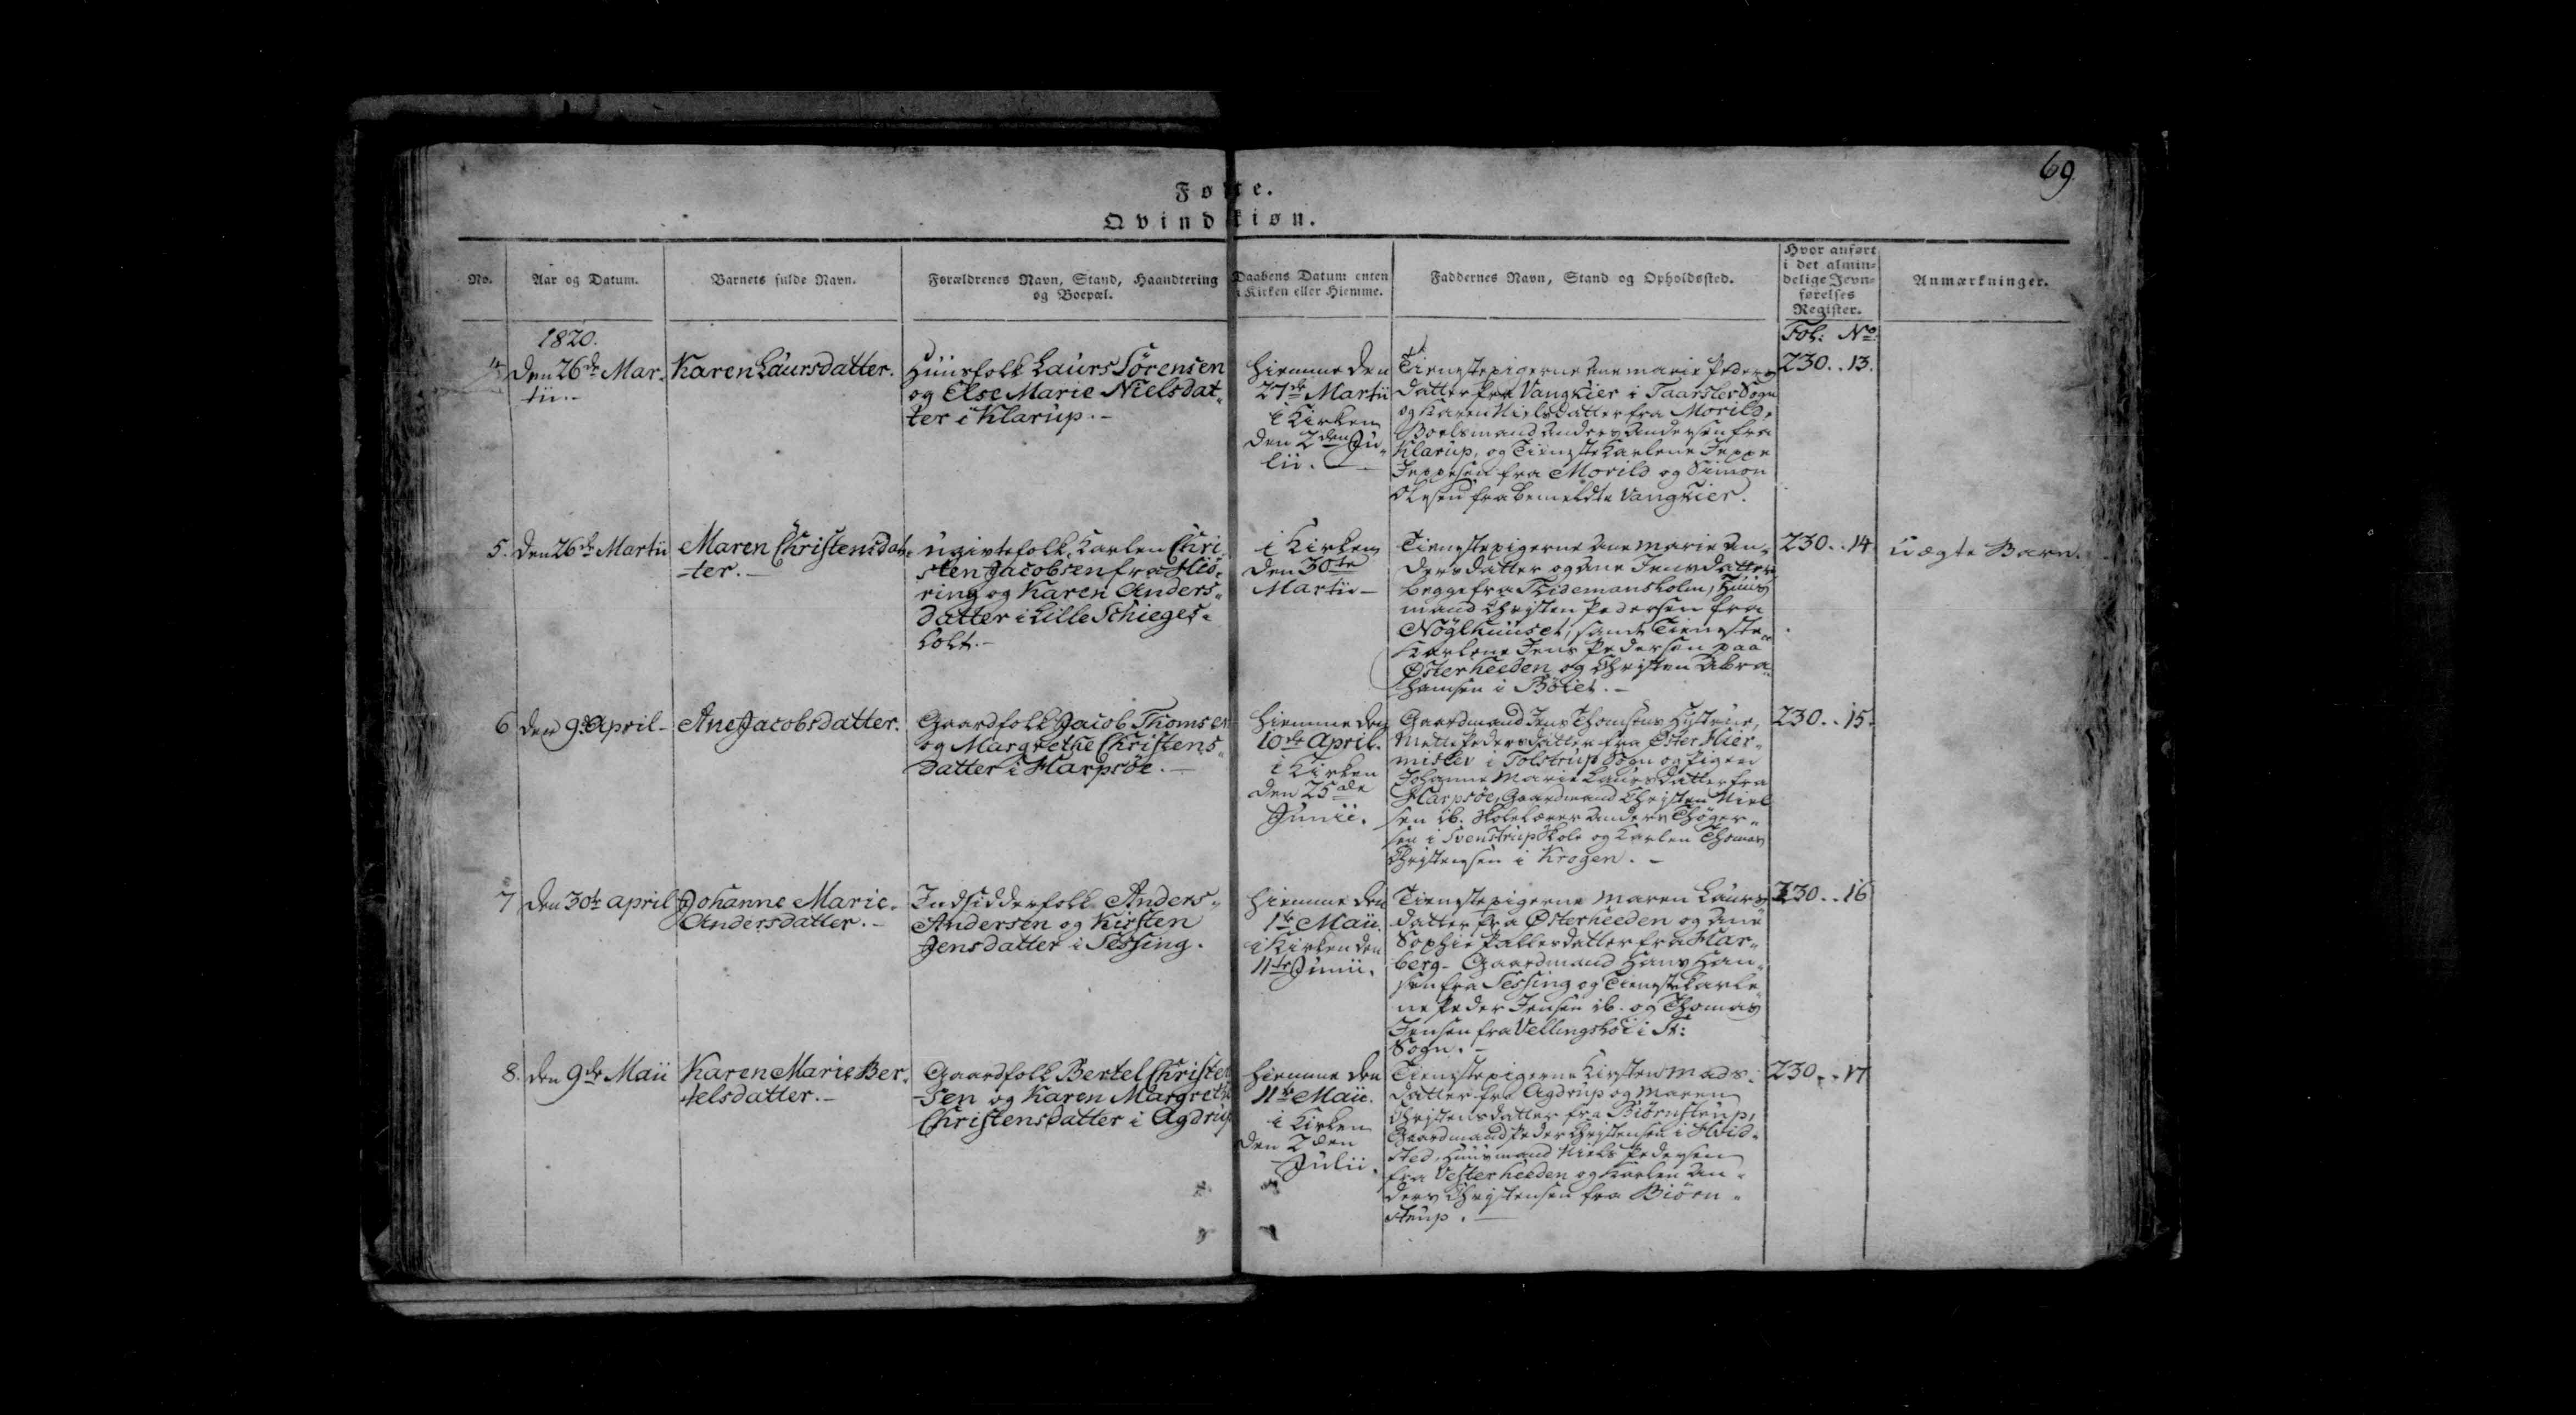 69.
Fødte.
Qvindkiøn.
No.
Aar og Datum.
Barnets fulde Navn.
Forældrenes Navn, Stand, Haandtering
og Boepæl.
Daabens Datum enten
i Kirken eller Hiemme.
Faddernes Navn, Stand og Opholdssted.
Hvor anført
i det almin-
delige Jevn-
førelses
Register.
Anmærkninger.
Fol: No
1820.
4
den 26de Mar-
tii.-
Karen Laursdatter.
Huusfolk Laurs Sørensen
og Else Marie Nielsdat-
ter i Klarup.-
Hiemme den
27de Martii
i Kirken
den 2den Ju-
lii.
Tienstepigerne Ane Marie Peders
datter fra Vangkier i Taarslev Sogn
og Karen Nielsdatter fra Morild,
Boelsmand Anders Andersen fra
Klarup, og Tienstekarlene Jeppe
Jeppesen fra Morild og Simon
Olesen fra bemeldte Vangkier.
230..13.
5.
den 26de Martii
Maren Christensdat-
-ter.-
Ugivtefolk, Karlen Chri-
sten Jacobsen fra Hiø-
ring og Karen Anders-
datter i Lille Schieges-
holt.-
i Kirken
den 30te
Martii-
Tienstepigerne Ane Marie An-
dersdatter og Ane Jensdatter
begge fra Tidemansholm, Huus
mand Christen Pedersen fra
Nøglhuuset, samt Tienste-
karlene Jens Pedersen paa
Østerheeden og Christen Abra-
hamsen i Bøiet.-
230..14.
Uægte Barn.
6
den 9de April-
Ane Jacobsdatter.
Gaardfolk Jacob Thomsen
og Margrethe Christens-
datter i Harpsøe.-
Hiemme den
10de April.
i Kirken
den 25de
Junii.
Gaardmand Jens Thomsens Hustrue,
Mette Pedersdatter fra Øster Hier-
mislev i Tolstrup Sogn og Pigen
Johanne Marie Laursdatter fra
Harpsøe, Gaardmand Christen Niel
sen ib. Skolelærer Anders Thøger-
sen i Svenstrup Skole og Karlen Thomas
Christensen i Krogen.-
230..15.
7
den 30te April
Johanne Marie-
Andersdatter.-
Indsidderfolk Anders-
Andersen og Kirsten
Jensdatter i Sessing.
Hiemme den
1te Maii.
i Kirken den
11te Junii.
Tienstepigerne Maren Laurs
datter fra Østerheeden og Ane
Sophie Pallesdatter fra Har-
berg- Gaardmand Hans Han-
sen fra Sessing og Tienstekarle
ne Peder Jensen ib. og Thomas
Jensen fra Vellingshøi i St:
Sogn.-
230..16
8.
den 9de Maii
Karen Marie Ber-
telsdatter.-
Gaardfolk Bertel Christen
-sen og Karen Margrethe
Christensdatter i Agdrup
Hiemme den
11te Maii.
i Kirken
den 2den
Julii.
Tienstepigerne Kirsten Mads-
datter fra Agdrup og Maren
Christensdatter fra Biørnstrup,
Gaardmand Peder Christensen i Hvid-
sted, Huusmand Niels Pedersen
fra Vesterheeden og Karlen An-
ders Christensen fra Biørn-
strup.-
230..17